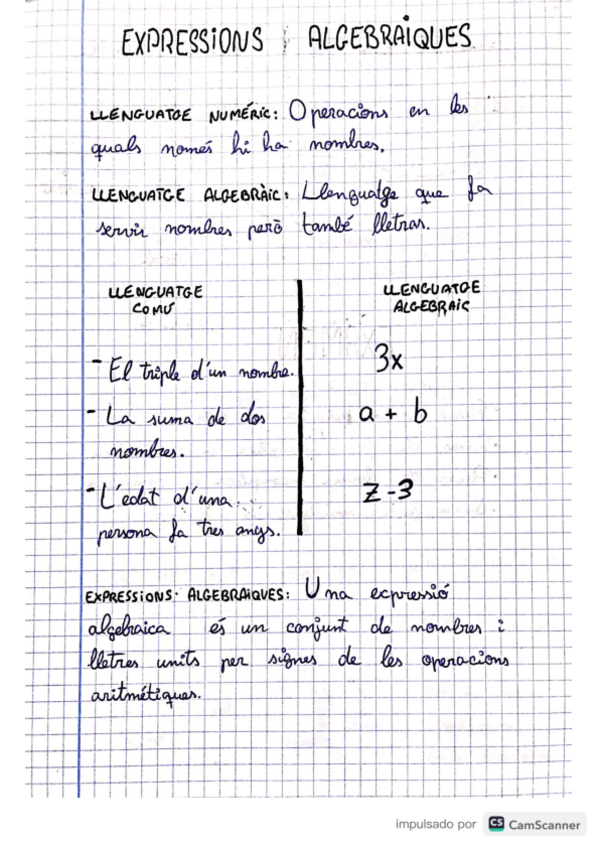 EXPRESSIONS ALGEBRAIQUES
LLENGUATGE NUMÉRIC: Operacions en les
quals només hi ha nombres.
LLENGUATGE ALGEBRÀIC: Llenguatge que fa
servir nombres però també lletras.
LLENGUATGE COMÚ
LLENGUATGE ALGEBRAIC
- El triple d'un nombre. 3x
- La suma de dos a + b
nombres.
- L'edat d'una z - 3
persona fa tres anys.
EXPRESSIONS ALGEBRAIQUES: Una expressió
algebraica és un conjunt de nombres i
lletres units per signes de les operacions
aritmétiques.
impulsado por CS CamScanner